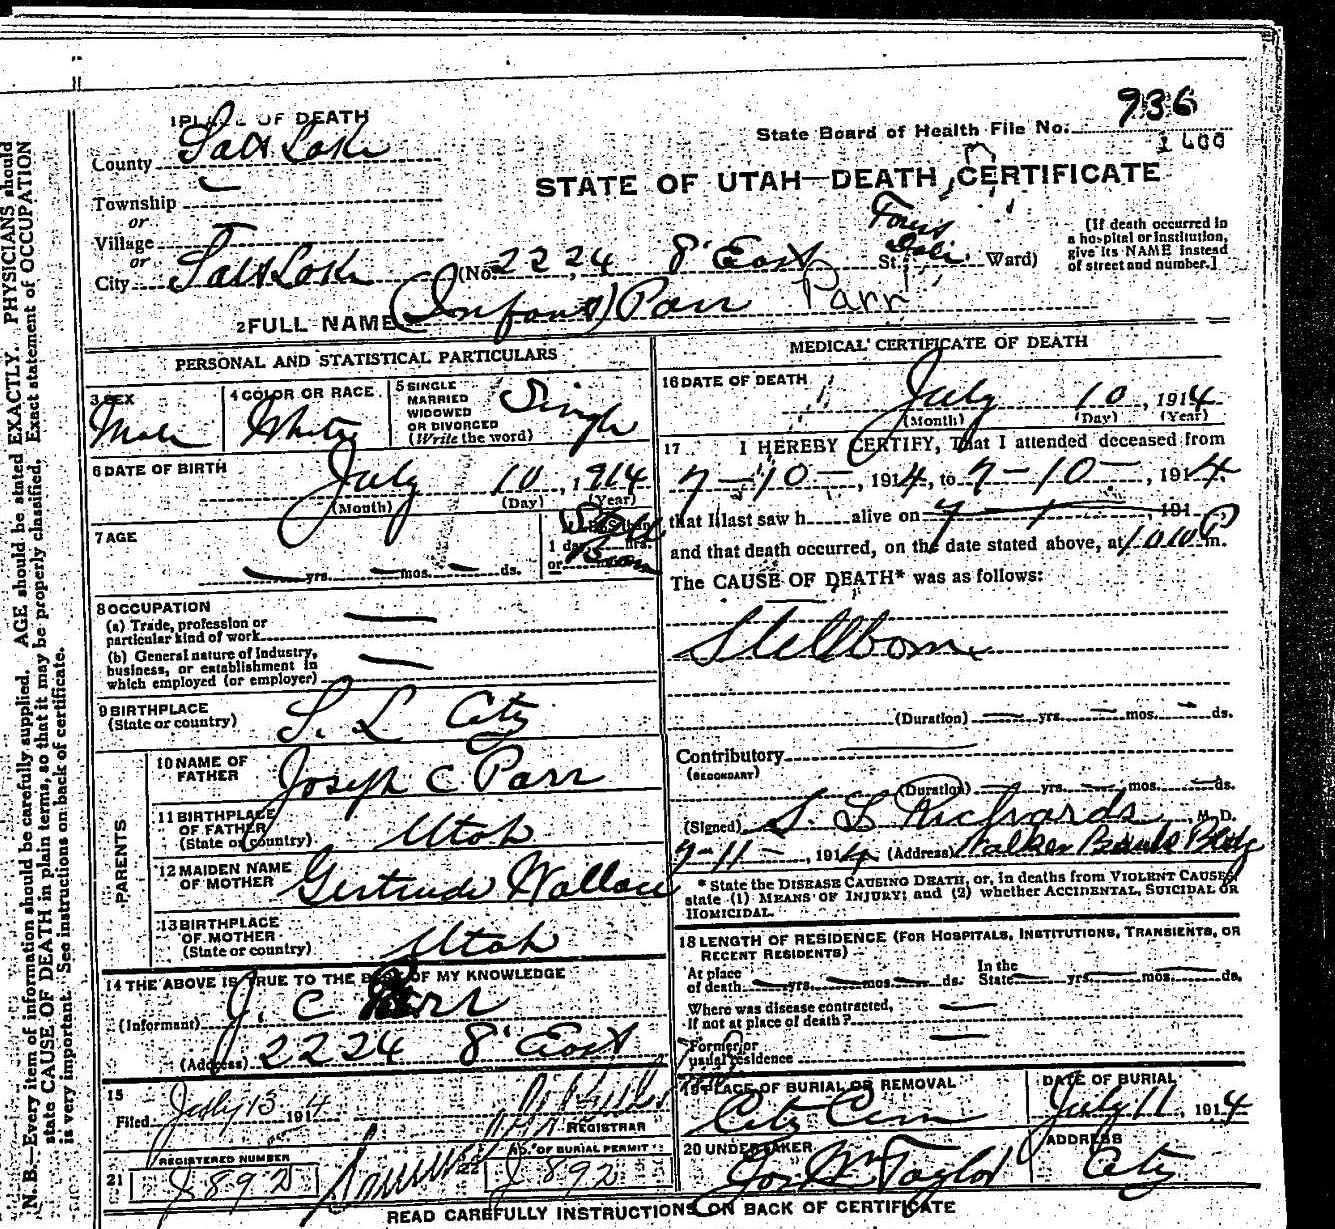 N. B.—Every item of information should be carefully supplied. AGE should be stated EXACTLY. PHYSICIANS should
state CAUSE OF DEATH in plain terms, so that it may be properly classified. Exact statement of OCCUPATION
is very important. See instructions on back of certificate.
936
State Board of Health File No.
1 PLACE OF DEATH
County Salt Lake
STATE OF UTAH—DEATH CERTIFICATE
Township
or
Village
or
City Salt Lake (No. 2224 8' East St. Ward)
[If death occurred in
a hospital or institution,
give its NAME instead
of street and number.]
2 FULL NAME (Infant) Parr Parr
PERSONAL AND STATISTICAL PARTICULARS
3 SEX Male
4 COLOR OR RACE White
5 SINGLE
MARRIED
WIDOWED
OR DIVORCED
(Write the word) Single
6 DATE OF BIRTH
July 10, 1914
(Month) (Day) (Year)
7 AGE
yrs. mos. ds.
1 day hrs.
or
8 OCCUPATION
(a) Trade, profession or
particular kind of work
(b) General nature of Industry,
business, or establishment in
which employed (or employer)
9 BIRTHPLACE
(State or country) S. L City
PARENTS
10 NAME OF
FATHER Joseph C Parr
11 BIRTHPLACE
OF FATHER
(State or country) Utah
12 MAIDEN NAME
OF MOTHER Gertrude Wallace
13 BIRTHPLACE
OF MOTHER
(State or country) Utah
14 THE ABOVE IS TRUE TO THE BEST OF MY KNOWLEDGE
(Informant) J. C Parr
(Address) 2224 8' East
15
Filed July 13 1914
REGISTRAR
REGISTERED NUMBER
21 J892
NO. OF BURIAL PERMIT
22 J892
MEDICAL CERTIFICATE OF DEATH
16 DATE OF DEATH
July 10, 1914
(Month) (Day) (Year)
17 I HEREBY CERTIFY, That I attended deceased from
7-10-, 1914, to 7-10-, 1914.
that I last saw h alive on 191
and that death occurred, on the date stated above, at 1010 P m.
The CAUSE OF DEATH* was as follows:
Stillborn
(Duration) yrs. mos. ds.
Contributory
(SECONDARY)
(Duration) yrs. mos. ds.
(Signed) S. L Richards M. D.
7-11-, 1914 (Address) Walker Bank Bldg
* State the DISEASE CAUSING DEATH, or, in deaths from VIOLENT CAUSES,
state (1) MEANS OF INJURY; and (2) whether ACCIDENTAL, SUICIDAL OR
HOMICIDAL.
18 LENGTH OF RESIDENCE (FOR HOSPITALS, INSTITUTIONS, TRANSIENTS, OR
RECENT RESIDENTS)
At place
of death yrs. mos. ds.
In the
State yrs. mos. ds.
Where was disease contracted,
If not at place of death?
Former or
usual residence
19 PLACE OF BURIAL OR REMOVAL
City Cem
DATE OF BURIAL
July 11, 1914
20 UNDERTAKER
Jos Wm Taylor
ADDRESS
City
READ CAREFULLY INSTRUCTIONS ON BACK OF CERTIFICATE